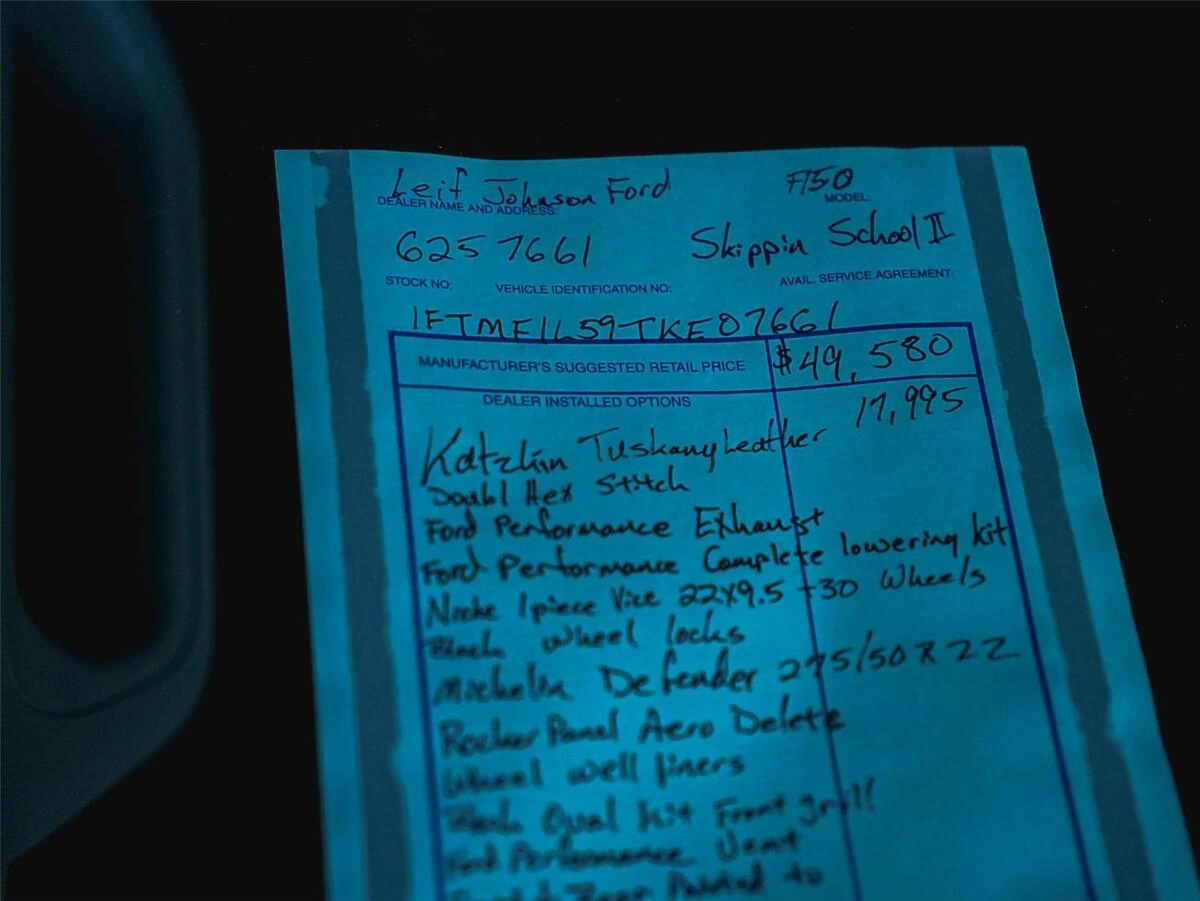 Leif Johnson Ford F150
DEALER NAME AND ADDRESS: MODEL:
6257661 Skippin School II
STOCK NO: VEHICLE IDENTIFICATION NO: AVAIL. SERVICE AGREEMENT:
1FTMF1L59TKE07661
MANUFACTURER'S SUGGESTED RETAIL PRICE $49,580
DEALER INSTALLED OPTIONS 17,995
Katzkin Tuskany Leather
Doubl Hex Stitch
Ford Performance Exhaust
Ford Performance Complete lowering kit
1piece Vice 22X9.5 +30 Wheels
Black wheel locks
Michelin Defender 275/50R22
Rocker Panel Aero Delete
Wheel well liners
Black Oval kit Front grill
Ford Performance Vent
Painted to